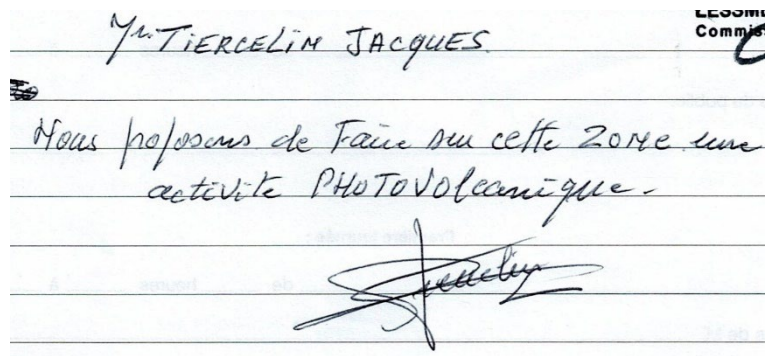 LESSM
Commis
Mr. TIERCELIN JACQUES.
Nous proposons de Faire sur cette Zone une
activité PHOTOVolcanique.